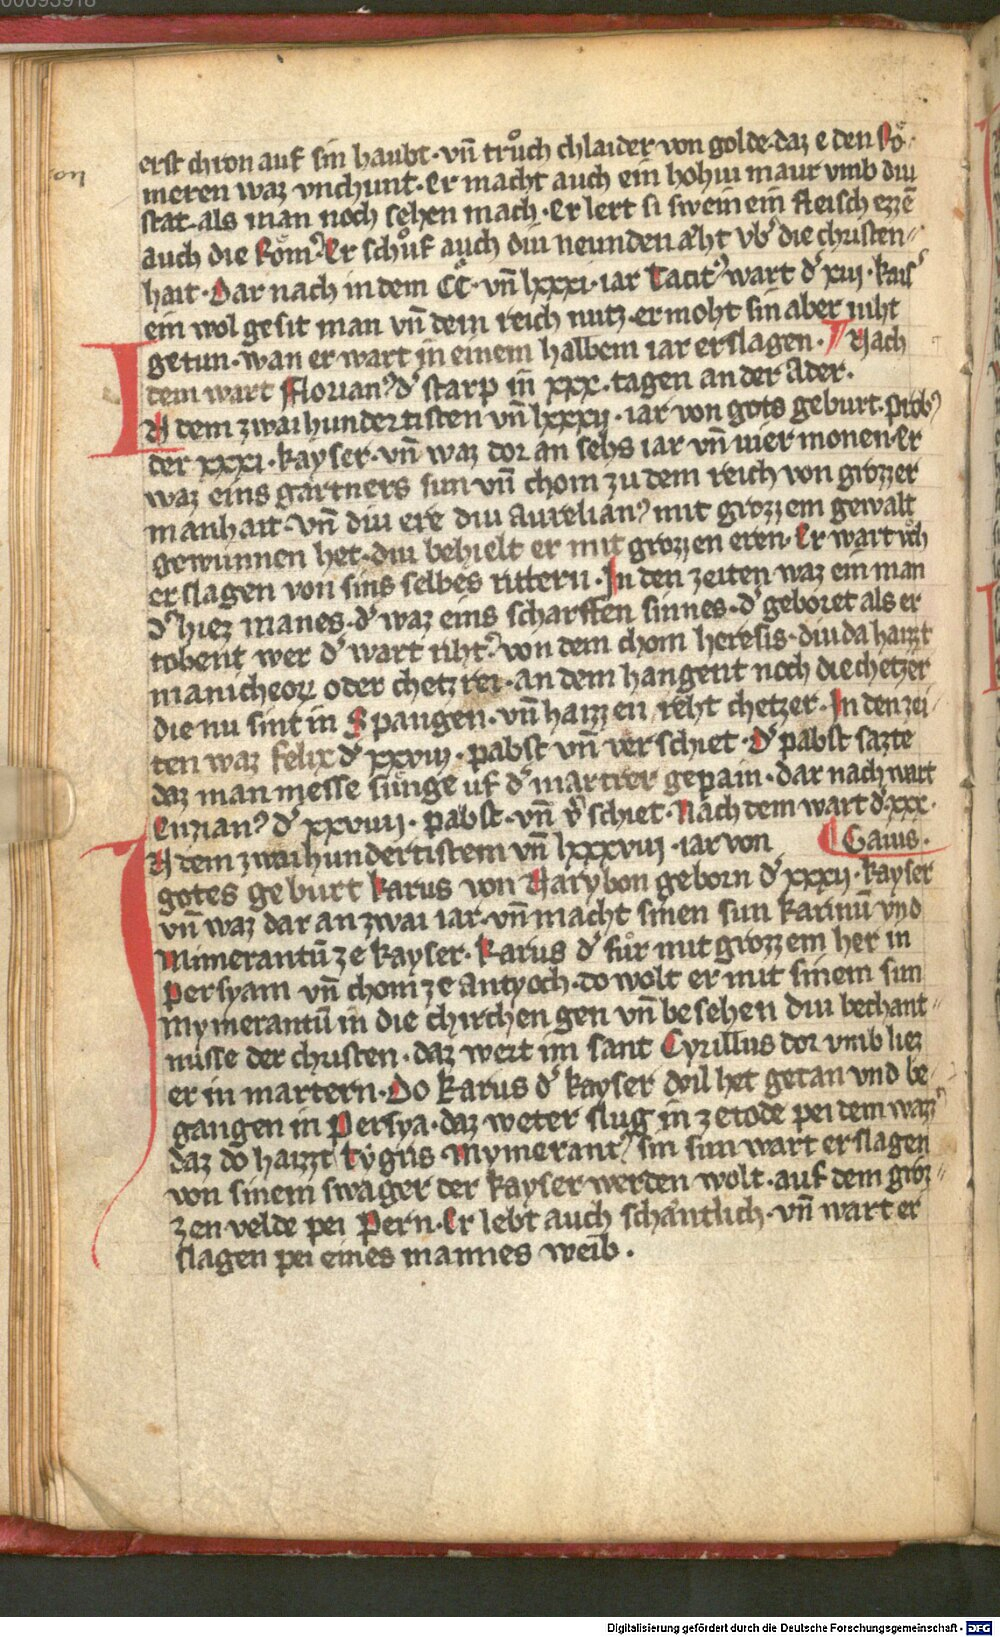 00093918
erst chron auf sin haubt · vñ trůch chlaider von golde · daz e den Rö·
meren waz vnchunt · Er macht auch ein hohiu maur vmb diu
stat · als man noch sehen mach · Er lert si sweinein fleisch ezzē
auch die Röm᷒ · Er schůf auch diu neunden aͤht vb᷒ die christen⸗
hait · Dar nach in dem CC · vñ lxxxi · iar Tacit᷒ wart d᷒ xxx · kais᷒
ein wol gesit man vñ dem reich nutz · er moht sin aber niht
getun · wan er wart in einem halbem iar erslagen · Nach
dem wart Florian᷒ d᷒ starp in xxx · tagen an der Ader ·
IN dem zwaihundertisten vñ lxxxij · iar von gots geburt · Prob᷒
der xxxi · kayser · vñ waz dor an sehs iar vñ uier monen · Er
waz eins gartners sun vñ chom zu dem reich von grozzer
manhait · vñ diu ere diu Aurelian᷒ mit grozzem gewalt
gewunnen het · diu behielt er mit grozzen eren · Er wart och
erslagen von sins selbes rittern · In den zeiten waz ein man
d᷒ hiez manes · d᷒ waz eins scharffen sinnes · d᷒ geboret als er
tobent wer d᷒ wart riht᷒ von dem chom heresis · diu da haizzt
manicheoꝝ oder chetzrei · an dem hangent noch die chetzer
die nu sint in Spangen · vñ haizzen reht chetzer · In den zei⸗
ten waz felix d᷒ xxviij · pabst vñ verschiet · D᷒ pabst sazte
daz man messe sünge uf d᷒ martrer gepain · dar nach wart
Euzian᷒ d᷒ xxviiij · pabst · vñ v᷒schiet · Nach dem wart d᷒ xxx ·
IN dem zwaihundertistem vñ lxxxviij · iar von Gaius ·
gotes geburt karus von Narybon geborn d᷒ xxxij · kayser
vñ waz dar an zwai iar · vñ macht sinen sun karinū vnd
Mimerantū ze kayser · karus d᷒ fůr mit grozzem her in
Persyam vñ chom ze Antyoch · do wolt er mit sinem sun
Mymerantū in die chirchen gen vñ besehen diu bechant⸗
nüsse der christen · daz wert im sant Cyrillus dor vmb liez
er in martern · Do karus d᷒ kayser doil het getan vnd be⸗
gangen in Persya · daz weter slug in zetode pei dem wazz᷒
daz do haizzt tygris · Mymerant᷒ sin sun wart erslagen
von sinem swager der kayser werden wolt · auf dem groz⸗
zen velde pei Pern · Er lebt auch schantlich · vñ wart er
slagen pei eines mannes weib ·
Digitalisierung gefördert durch die Deutsche Forschungsgemeinschaft - DFG